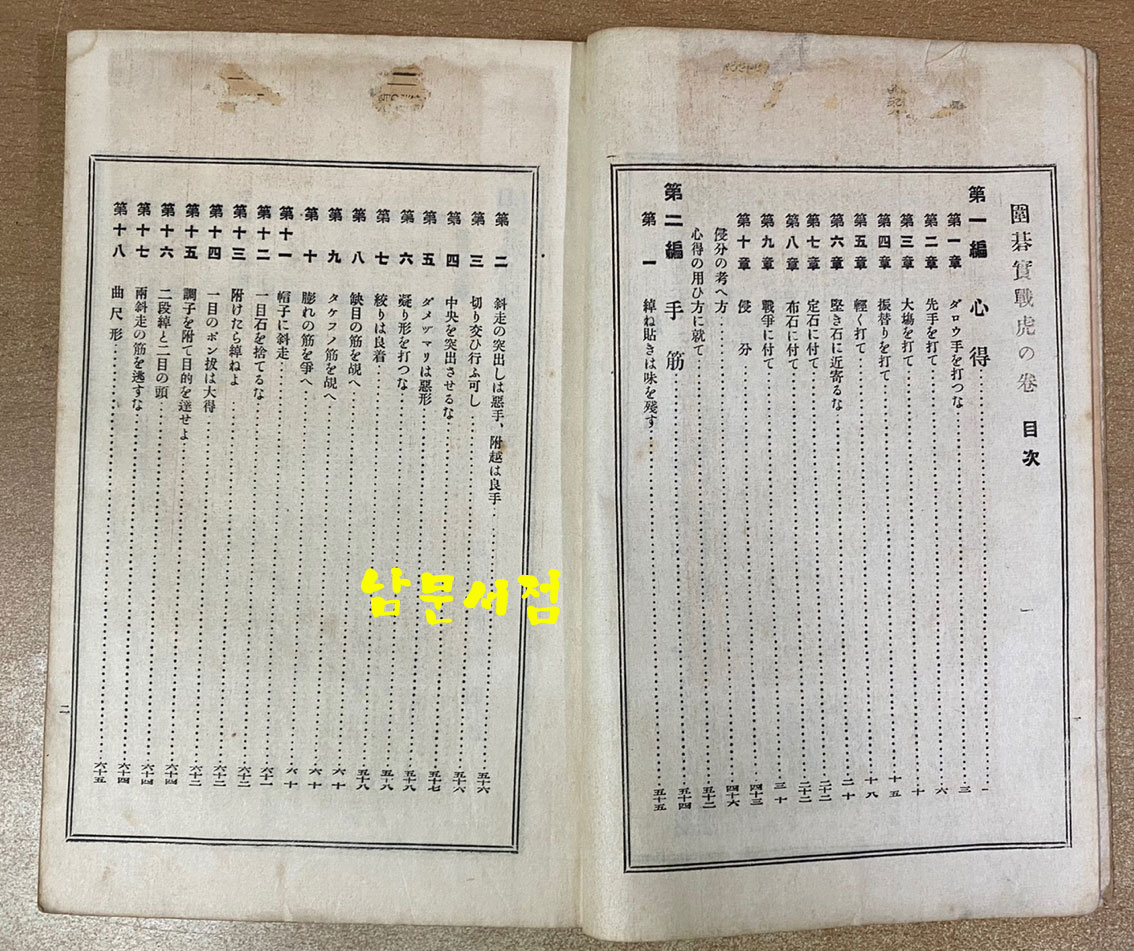 圍碁實戰虎の卷　目次
第一編　心得……一
第一章　ダロウ手を打つな……三
第二章　先手を打て……六
第三章　大塲を打て……十
第四章　振替りを打て……十五
第五章　輕く打て……十八
第六章　堅き石に近寄るな……二十
第七章　定石に付て……二十二
第八章　布石に付て……二十三
第九章　戰爭に付て……三十
第十章　侵分……四十三
侵分の考へ方……四十六
心得の用ひ方に就て……五十二
第二編　手筋……五十四
第一　綽ね貼きは味を殘す……五十五
一
第二　斜走の突出しは惡手、附越は良手……五十六
第三　切り交ひ行ふ可し……五十六
第四　中央を突出させるな……五十六
第五　ダメヅマリは惡形……五十七
第六　凝り形を打つな……五十八
第七　絞りは良着……五十八
第八　缺目の筋を覘へ……五十八
第九　タケフノ筋を覘へ……六十
第十　膨れの筋を爭へ……六十
第十一　帽子に斜走……六十
第十二　一目石を捨てるな……六十一
第十三　附けたら綽ねよ……六十二
第十四　一目のポン拔は大得……六十二
第十五　調子を附て目的を達せよ……六十三
第十六　二段綽と二目の頭……六十四
第十七　兩斜走の筋を逃すな……六十四
第十八　曲尺形……六十五
二
남문서점